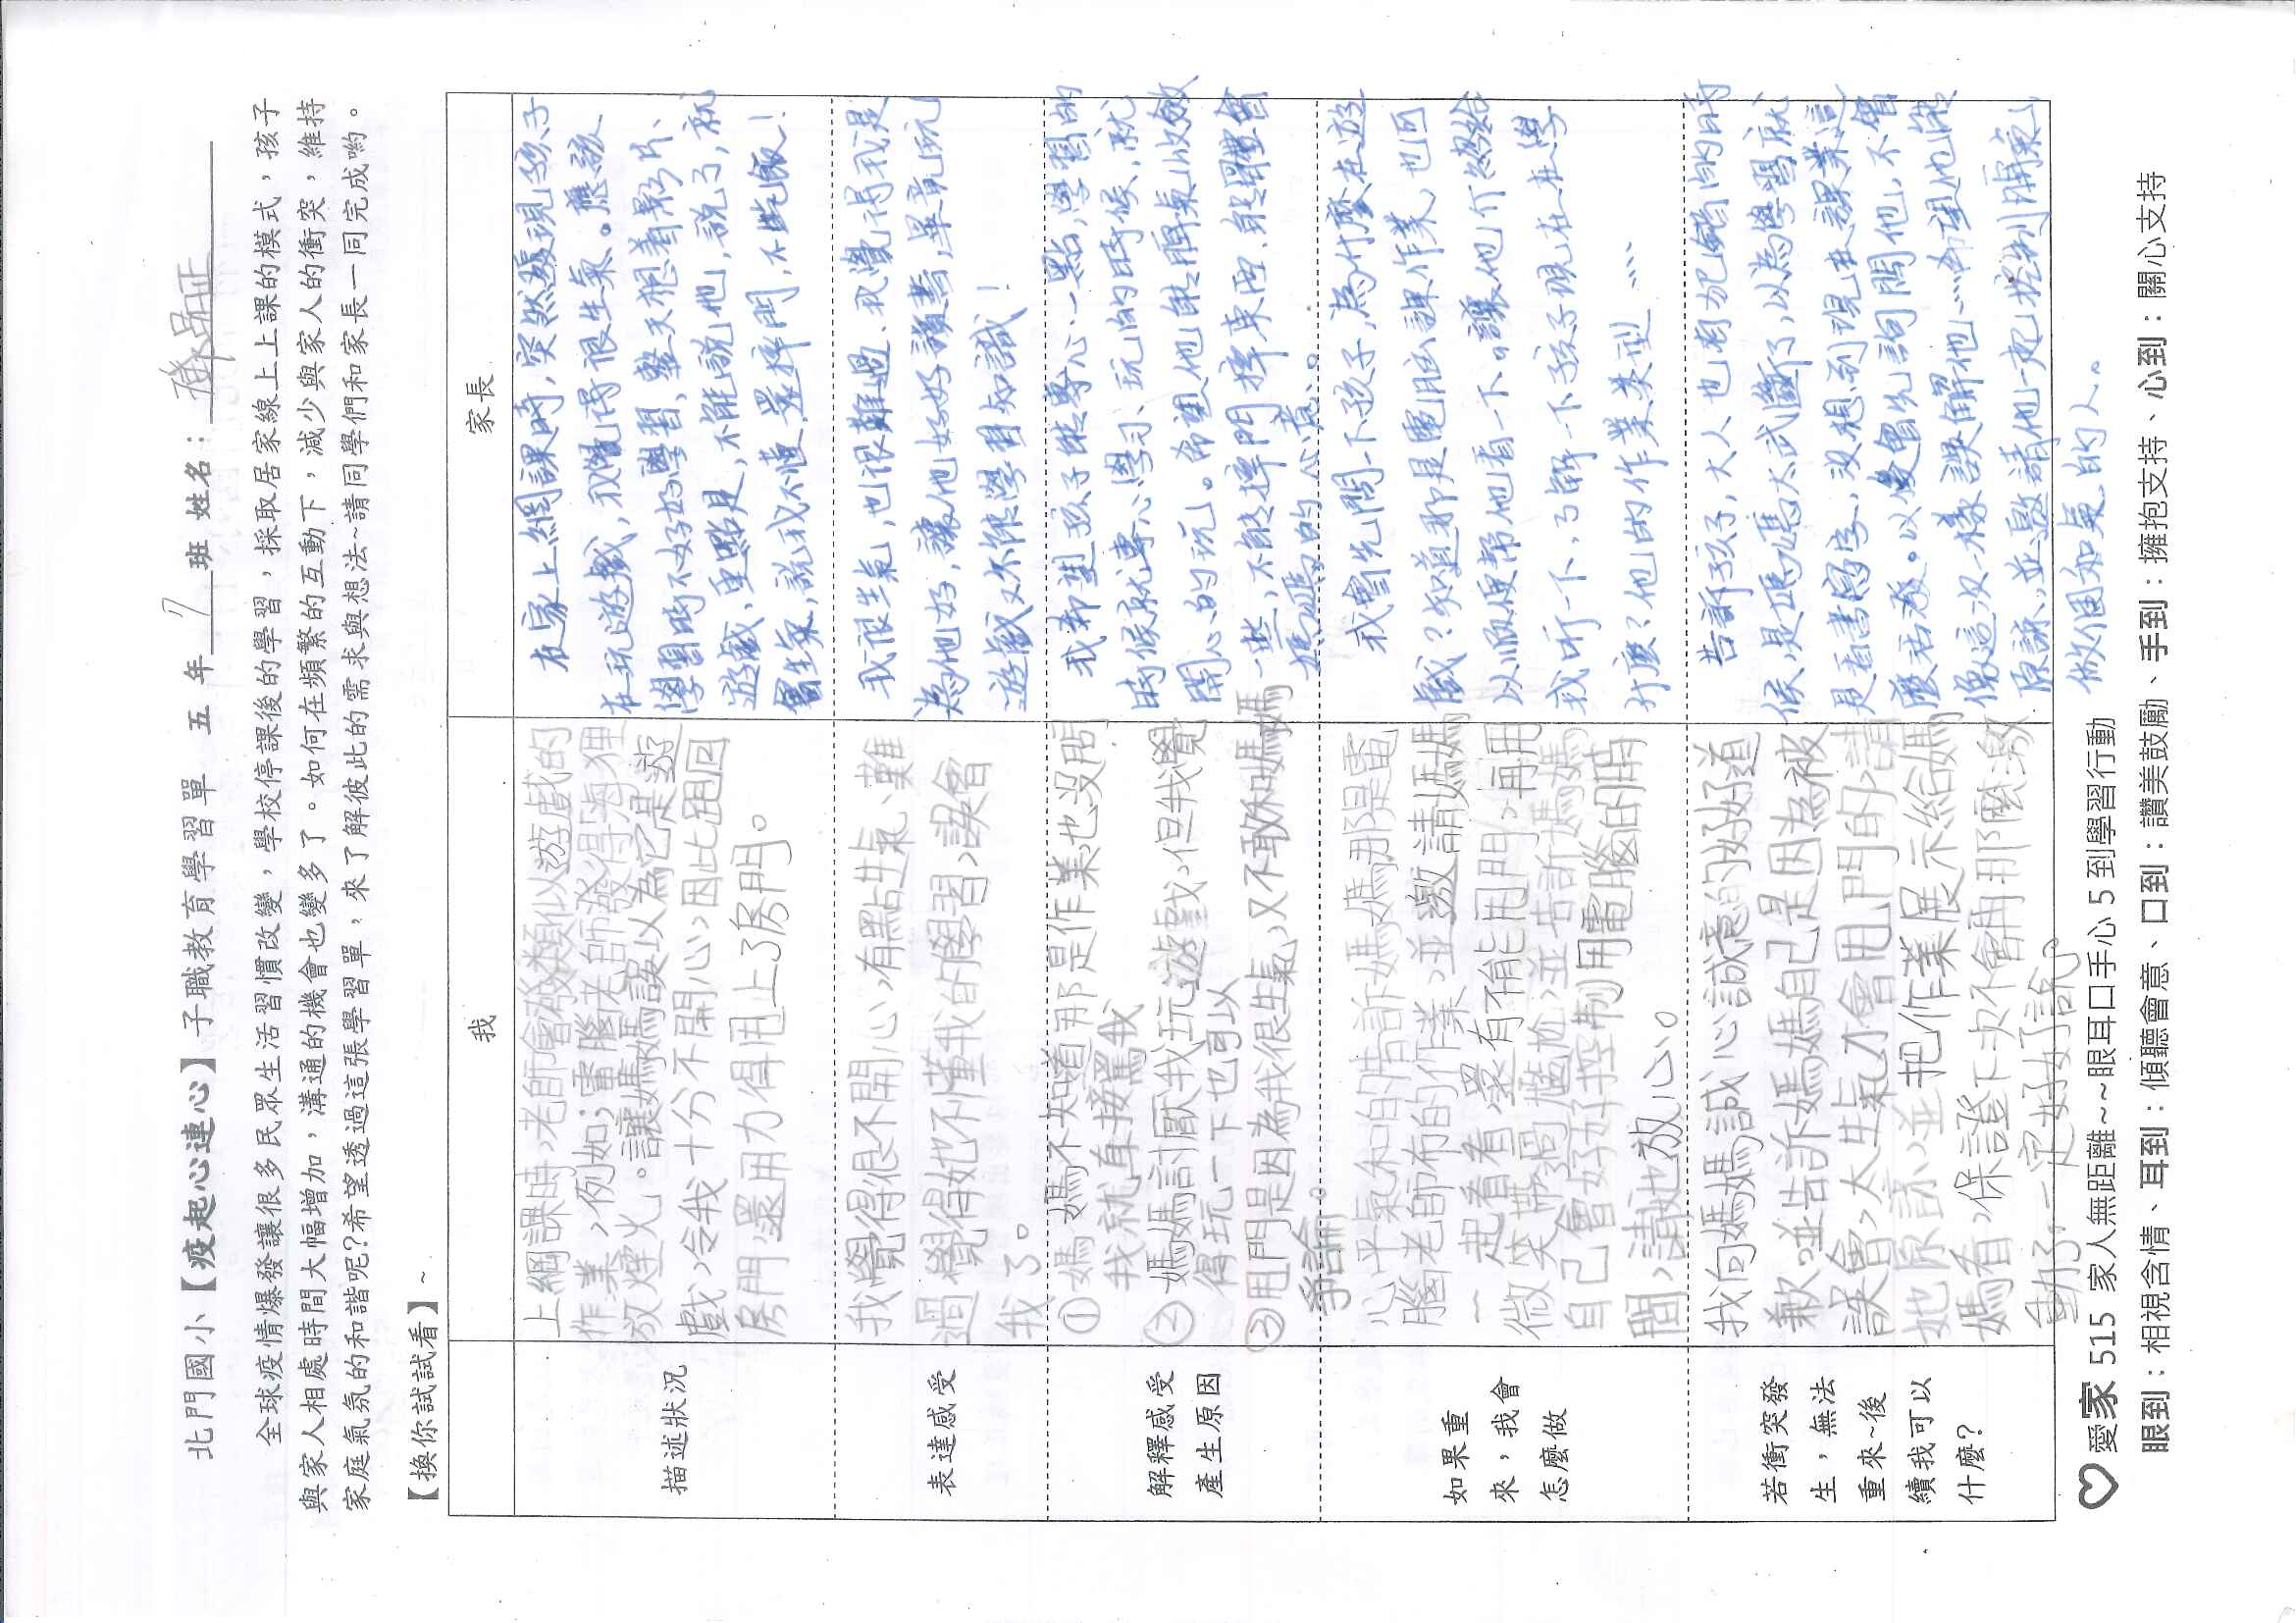 北門國小【疫起心連心】子職教育學習單 五 年 7 班 姓名：
全球疫情爆發讓很多民眾生活習慣改變，學校停課後的學習，採取居家線上上課的模式，孩子
與家人相處時間大幅增加，溝通的機會也變多了。如何在頻繁的互動下，減少與家人的衝突，維持
家庭氣氛的和諧呢?希望透過這張學習單，來了解彼此的需求與想法~請同學們和家長一同完成喲。
【換你試試看】~
我
家長
描述狀況
上網課時，老師會發類似遊戲的
作業，例如；電腦老師發得海狸
放煙火。讓媽媽誤以為它是遊
戲，令我十分不開心，因此甩回
房門還用力得甩上了房門。
在家上網課時，突然發現孩子
在玩遊戲，我覺得很生氣。應該
學習時不好好學習，整天想著影片、
遊戲，重點是，不能說他，說了，就
會生氣，說我不懂，還摔門，不吃飯！
表達感受
我覺得很不開心，有點生氣、難
過，覺得她不懂我的學習，誤會
我了。
我很生氣，也很難過，我覺得我是
為他好，讓他好好讀書，畢竟玩
遊戲又不能學習知識！
解釋感受
產生原因
①媽媽不知道那是作業也沒問
我就直接罵我
②媽媽討厭我玩遊戲，但我覺
得玩一下也可以
③甩門是因為我很生氣，又不敢和媽媽
爭論。
我希望孩子能專心一點，學習的
時候就專心學習、玩的時候，就
開心的玩。希望他能脾氣收斂
一些，不能摔門摔東西，能體會
媽媽的心意。
如果重
來，我會
怎麼做
心平氣和的告訴媽媽那是電
腦老師布的作業，並邀請媽媽
一起看看，還有不能甩門，再用
微笑帶過尷尬，並告訴媽媽
自己會好好控制用電腦的時
間，請她放心。
我會先問一下孩子，為什麼在遊
戲？知道那是電腦課作業，也可
以順便幫他看一下。讓他介紹給
我听一下，了解一下孩子現在在學
什麼？他的作業类型……
若衝突發
生，無法
重來~後
續我可以
什麼？
我向媽媽誠心誠意的好好道
歉。並告訴媽媽自己是因為被
誤會，太生氣才會甩門的，請
她原諒，並把作業展示給媽
媽看，保證下次不會再那麼激
動了，一定好好說。
告訴孩子，大人也有犯錯的時
候，是媽媽太武斷了，以為學習就
是看書寫字，沒想到現在課業這
麼活潑。以後會先詢問他，不會
像這次一樣誤解他……希望他能
原諒，並邀請他一起控制脾氣，
做個和氣的人。
愛家 515 家人無距離~~眼耳口手心 5 到學習行動
眼到：相視含情、耳到：傾聽會意、口到：讚美鼓勵、手到：擁抱支持、心到：關心支持